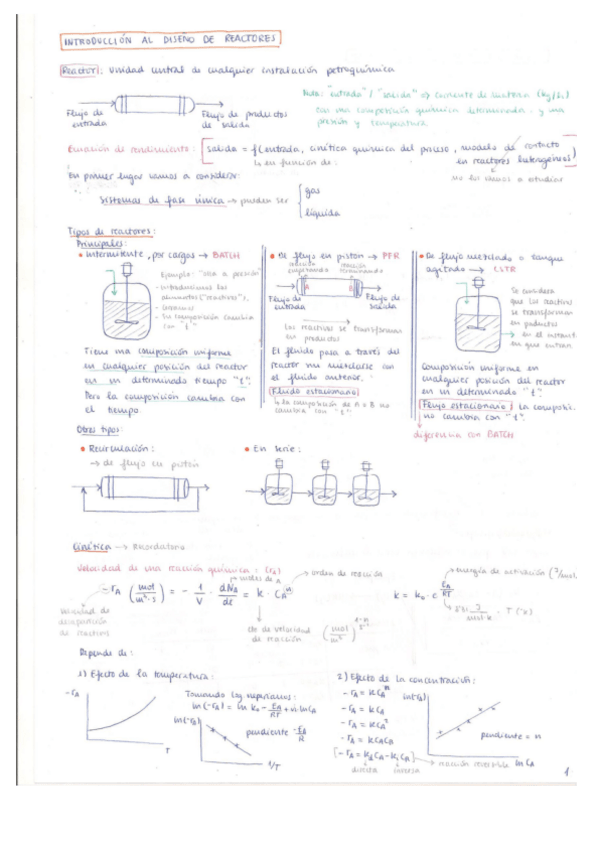 INTRODUCCIÓN AL DISEÑO DE REACTORES
Reactor: Unidad central de cualquier instalación petroquímica
Nota: "entrada" / "salida" => corriente de materia (kg/s)
con una composición química determinada y una
presión y temperatura.
Flujo de entrada
Flujo de productos de salida
Ecuación de rendimiento: salida = f(entrada, cinética química del proceso, modelo de contacto
en reactores heterogéneos)
↳ en función de:
no los vamos a estudiar
En primer lugar vamos a considerar:
Sistemas de fase única → pueden ser
gas
líquida
Tipos de reactores:
Principales:
• Intermitente, por cargas → BATCH
Ejemplo: "olla a presión"
- introducimos los
alimentos ("reactivos"),
- cerramos
- Su composición cambia
con "t"
Tiene una composición uniforme
en cualquier posición del reactor
en un determinado tiempo "t".
Pero la composición cambia con
el tiempo
• De flujo en pistón → PFR
reacción empezando
reacción terminando
A
B
Flujo de entrada
Flujo de salida
Los reactivos se transforman
en productos
El fluido pasa a través del
reactor sin mezclarse con
el fluido anterior.
Fluido estacionario
↳ la composición de A o B no
cambia con "t"
• De flujo mezclado o tanque
agitado → CSTR
Se considera
que los reactivos
se transforman
en productos
en el instante
en que entran
Composición uniforme en
cualquier posición del reactor
en un determinado "t".
Flujo estacionario: la composic.
no cambia con "t".
diferencia con BATCH
Otros tipos:
• Recirculación:
→ de flujo en pistón
• En serie:
Cinética → Recordatorio
Velocidad de una reacción química: (rA)
moles de A
orden de reacción
energía de activación (J/mol)
-rA (mol/m³·s) = - 1/V · dNA/dt = k · CA^n
velocidad de
desaparición
de reactivos
cte de velocidad
de reacción
Depende de:
1) Efecto de la temperatura:
-rA
T
Tomando logaritmos:
ln(-rA) = ln k₀ - EA/RT + n ln CA
ln(-rA)
pendiente -EA/R
1/T
2) Efecto de la concentración:
-rA = kCA^n
-rA = kCA
-rA = kCA²
-rA = kCACB
directa
inversa
reacción reversible
pendiente = n
ln CA
1